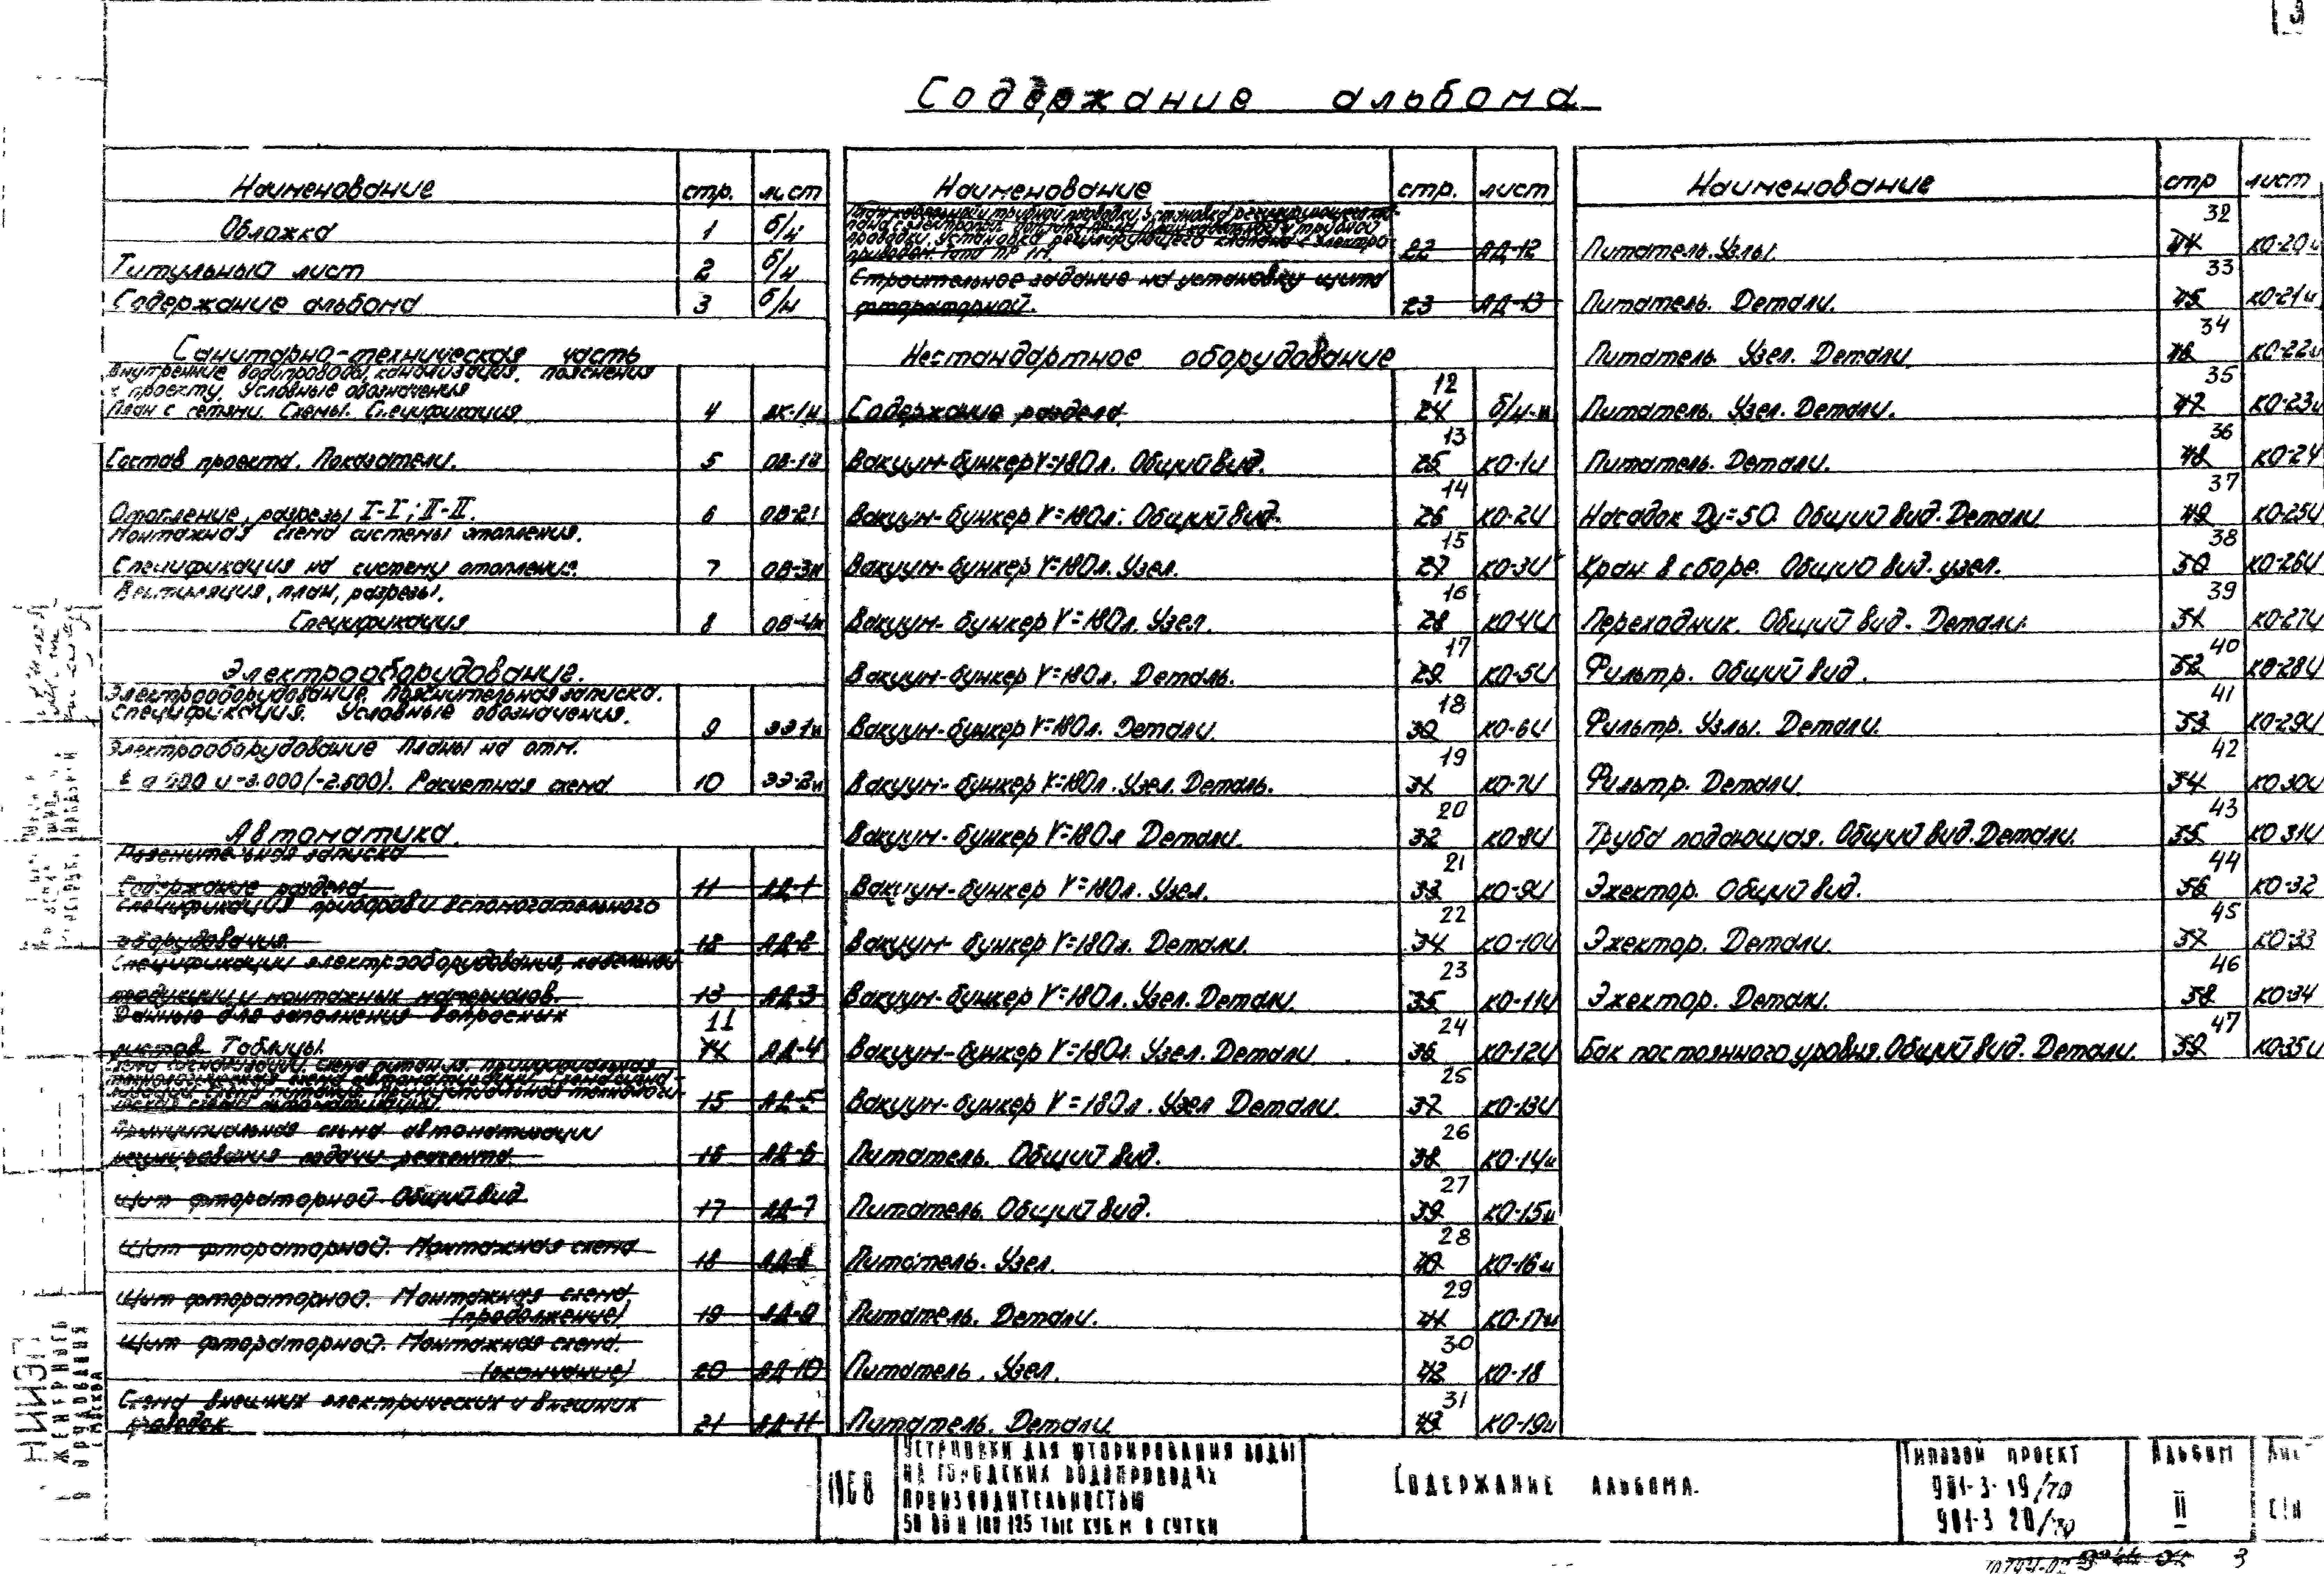 3
Содержание альбома
Наименование стр. лист
Обложка 1 б/н
Титульный лист 2 б/н
Содержание альбома 3 б/н
Санитарно-техническая часть
Внутренние водопроводы, канализация. пояснения
к проекту. Условные обозначения
План с сетями. Схемы. Спецификация 4 ВК-1и
Состав проекта. Показатели. 5 ОВ-1и
Отопление, разрезы I-I; II-II. 6 ОВ-2и
Монтажная схема системы отопления.
Спецификация на систему отопления. 7 ОВ-3и
Вентиляция, план, разрезы.
Спецификация 8 ОВ-4и
Электрооборудование.
Электрооборудование. Пояснительная записка.
Спецификация. Условные обозначения. 9 ЭЭ-1и
Электрооборудование Планы на отм.
0.000 и -3.000 (-2.500). Расчетная схема 10 ЭЭ-2и
Автоматика.
Пояснительная записка
Содержание раздела 11 АД-1
Спецификация приборов и вспомогательного
оборудования 12 АД-2
Спецификации электрооборудования, кабельной
продукции и монтажных материалов. 13 АД-3
Данные для заполнения вопросных 11
листов Таблицы. 14 АД-4
15 АД-5
Принципиальная схема автоматизации
регулирования подачи реагента 16 АД-6
Щит фтораторной. Общий вид 17 АД-7
Щит фтораторной. Монтажная схема 18 АД-8
Щит фтораторной. Монтажная схема
(продолжение) 19 АД-9
Щит фтораторной. Монтажная схема.
(окончание) 20 АД-10
Схема внешних электрических и внешних
проводок 21 АД-11
Наименование стр. лист
проводки, Установка регулирующего клапана с электро-
приводом типа ПР-1М. 22 АД-12
Строительное задание на установку щита
фтораторной. 23 АД-13
Нестандартное оборудование
12
Содержание раздела 24 б/н-и
13
Вакуум-бункер V=180л. Общий вид. 25 КО-1и
14
Вакуум-бункер V=180л. Общий вид. 26 КО-2и
15
Вакуум-бункер V=180л. Узел. 27 КО-3и
16
Вакуум-бункер V=180л. Узел. 28 КО-4и
17
Вакуум-бункер V=180л. Деталь. 29 КО-5и
18
Вакуум-бункер V=180л. Детали. 30 КО-6и
19
Вакуум-бункер V=180л. Узел. Деталь. 31 КО-7и
20
Вакуум-бункер V=180л Детали. 32 КО-8и
21
Вакуум-бункер V=180л. Узел. 33 КО-9и
22
Вакуум-бункер V=180л. Детали. 34 КО-10и
23
Вакуум-бункер V=180л. Узел. Детали. 35 КО-11и
24
Вакуум-бункер V=180л. Узел. Детали 36 КО-12и
25
Вакуум-бункер V=180л. Узел Детали. 37 КО-13и
26
Питатель. Общий вид. 38 КО-14и
27
Питатель. Общий вид. 39 КО-15и
28
Питатель. Узел. 40 КО-16и
29
Питатель. Детали. 41 КО-17и
30
Питатель. Узел. 42 КО-18
31
Питатель. Детали 43 КО-19и
Наименование стр лист
32
Питатель. Узлы. 44 КО-20и
33
Питатель. Детали. 45 КО-21и
34
Питатель. Узел. Детали. 46 КО-22и
35
Питатель. Узел. Детали. 47 КО-23и
36
Питатель. Детали. 48 КО-24
37
Насадок Dу=50. Общий вид. Детали 49 КО-25и
38
Кран в сборе. Общий вид. узел. 50 КО-26и
39
Переходник. Общий вид. Детали. 51 КО-27и
40
Фильтр. Общий вид. 52 КО-28и
41
Фильтр. Узлы. Детали. 53 КО-29и
42
Фильтр. Детали 54 КО-30и
43
Труба подающая. Общий вид. Детали. 55 КО-31и
44
Эжектор. Общий вид. 56 КО-32
45
Эжектор. Детали. 57 КО-33
46
Эжектор. Детали. 58 КО-34
47
Бак постоянного уровня. Общий вид. Детали. 59 КО-35и
1968
Установки для фторирования воды
на городских водопроводах
производительностью
50 80 и 100 125 тыс куб.м в сутки
Содержание альбома.
Типовой проект
901-3-19/70
901-3 20/70
Альбом
II
3